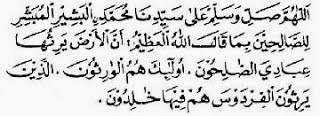 اَللّٰهُمَّ صَلِّ وَسَلِّمْ عَلٰى سَيِّدِنَا مُحَمَّدٍ ࣙالْبَشِيْرِ الْمُبَشِّرِ
لِلصَّالِحِيْنَ بِمَا قَالَ اللهُ الْعَظِيْمُ: أَنَّ الْأَرْضَ يَرِثُهَا
عِبَادِيَ الصّٰلِحُوْنَ. أُولٰئِكَ هُمُ الْوَارِثُوْنَ. الَّذِيْنَ
يَرِثُوْنَ الْفِرْدَوْسَ هُمْ فِيْهَا خٰلِدُوْنَ.